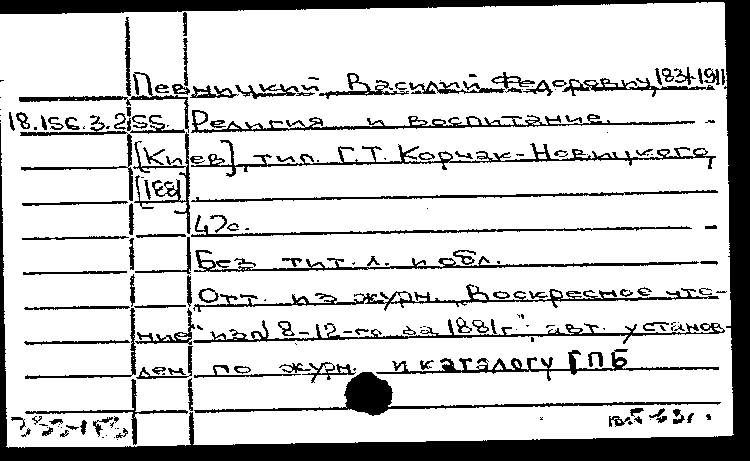 Певницкий, Василий Федорович, 1831-1911
18.156.3.255. Религия и воспитание.
[Киев], тип. Г.Т. Корчак-Новицкого,
[1881].
47с.
Без тит. л. и обл.
Отт. из журн. „Воскресное чте-
ние“ из 8-12-го за 1881г.; авт. установ-
лен по журн. и каталогу ГПБ